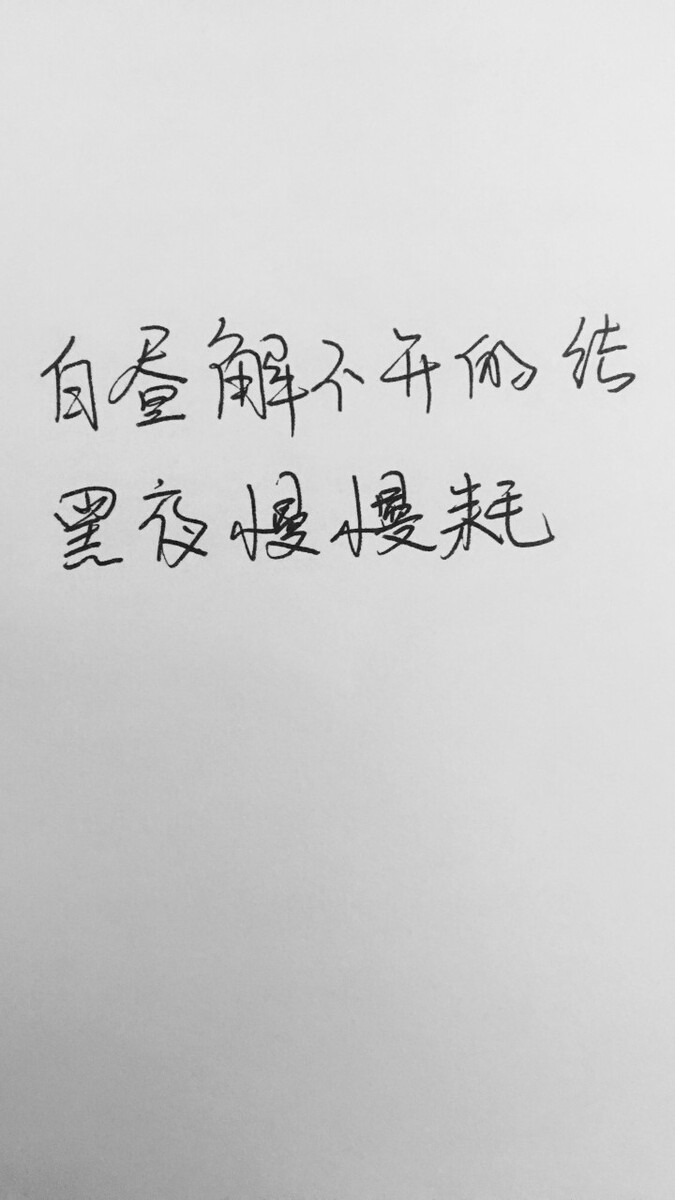 白昼解不开的结
黑夜慢慢耗